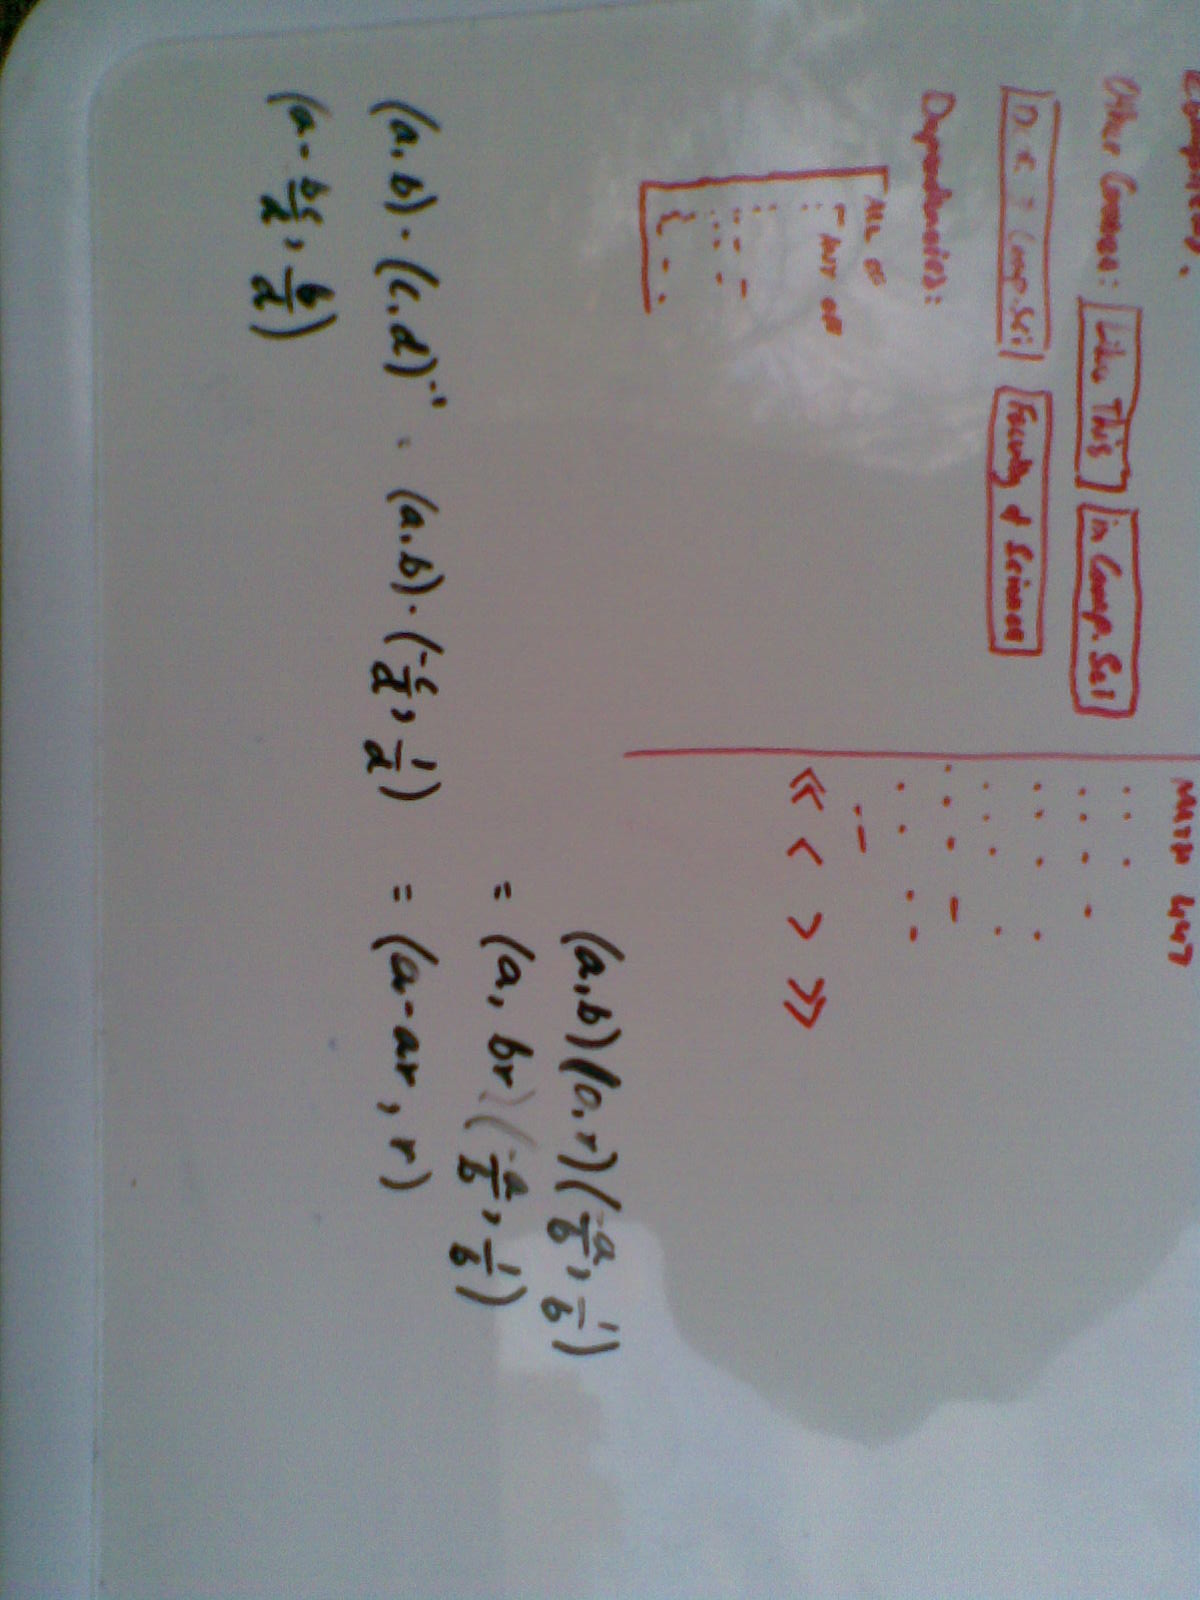 Other Courses: Like This in Comp. Sci
Comp. Sci Faculty of Science
Dependencies:
ALL OF
ANY OF
MATH
<< < > >>
(a,b)(0,r)(-a/b, 1/b)
= (a, br)(-a/b, 1/b)
(a,b)·(c,d)⁻¹ = (a,b)·(-c/d, 1/d) = (a-ar, r)
(a - bc/d, b/d)